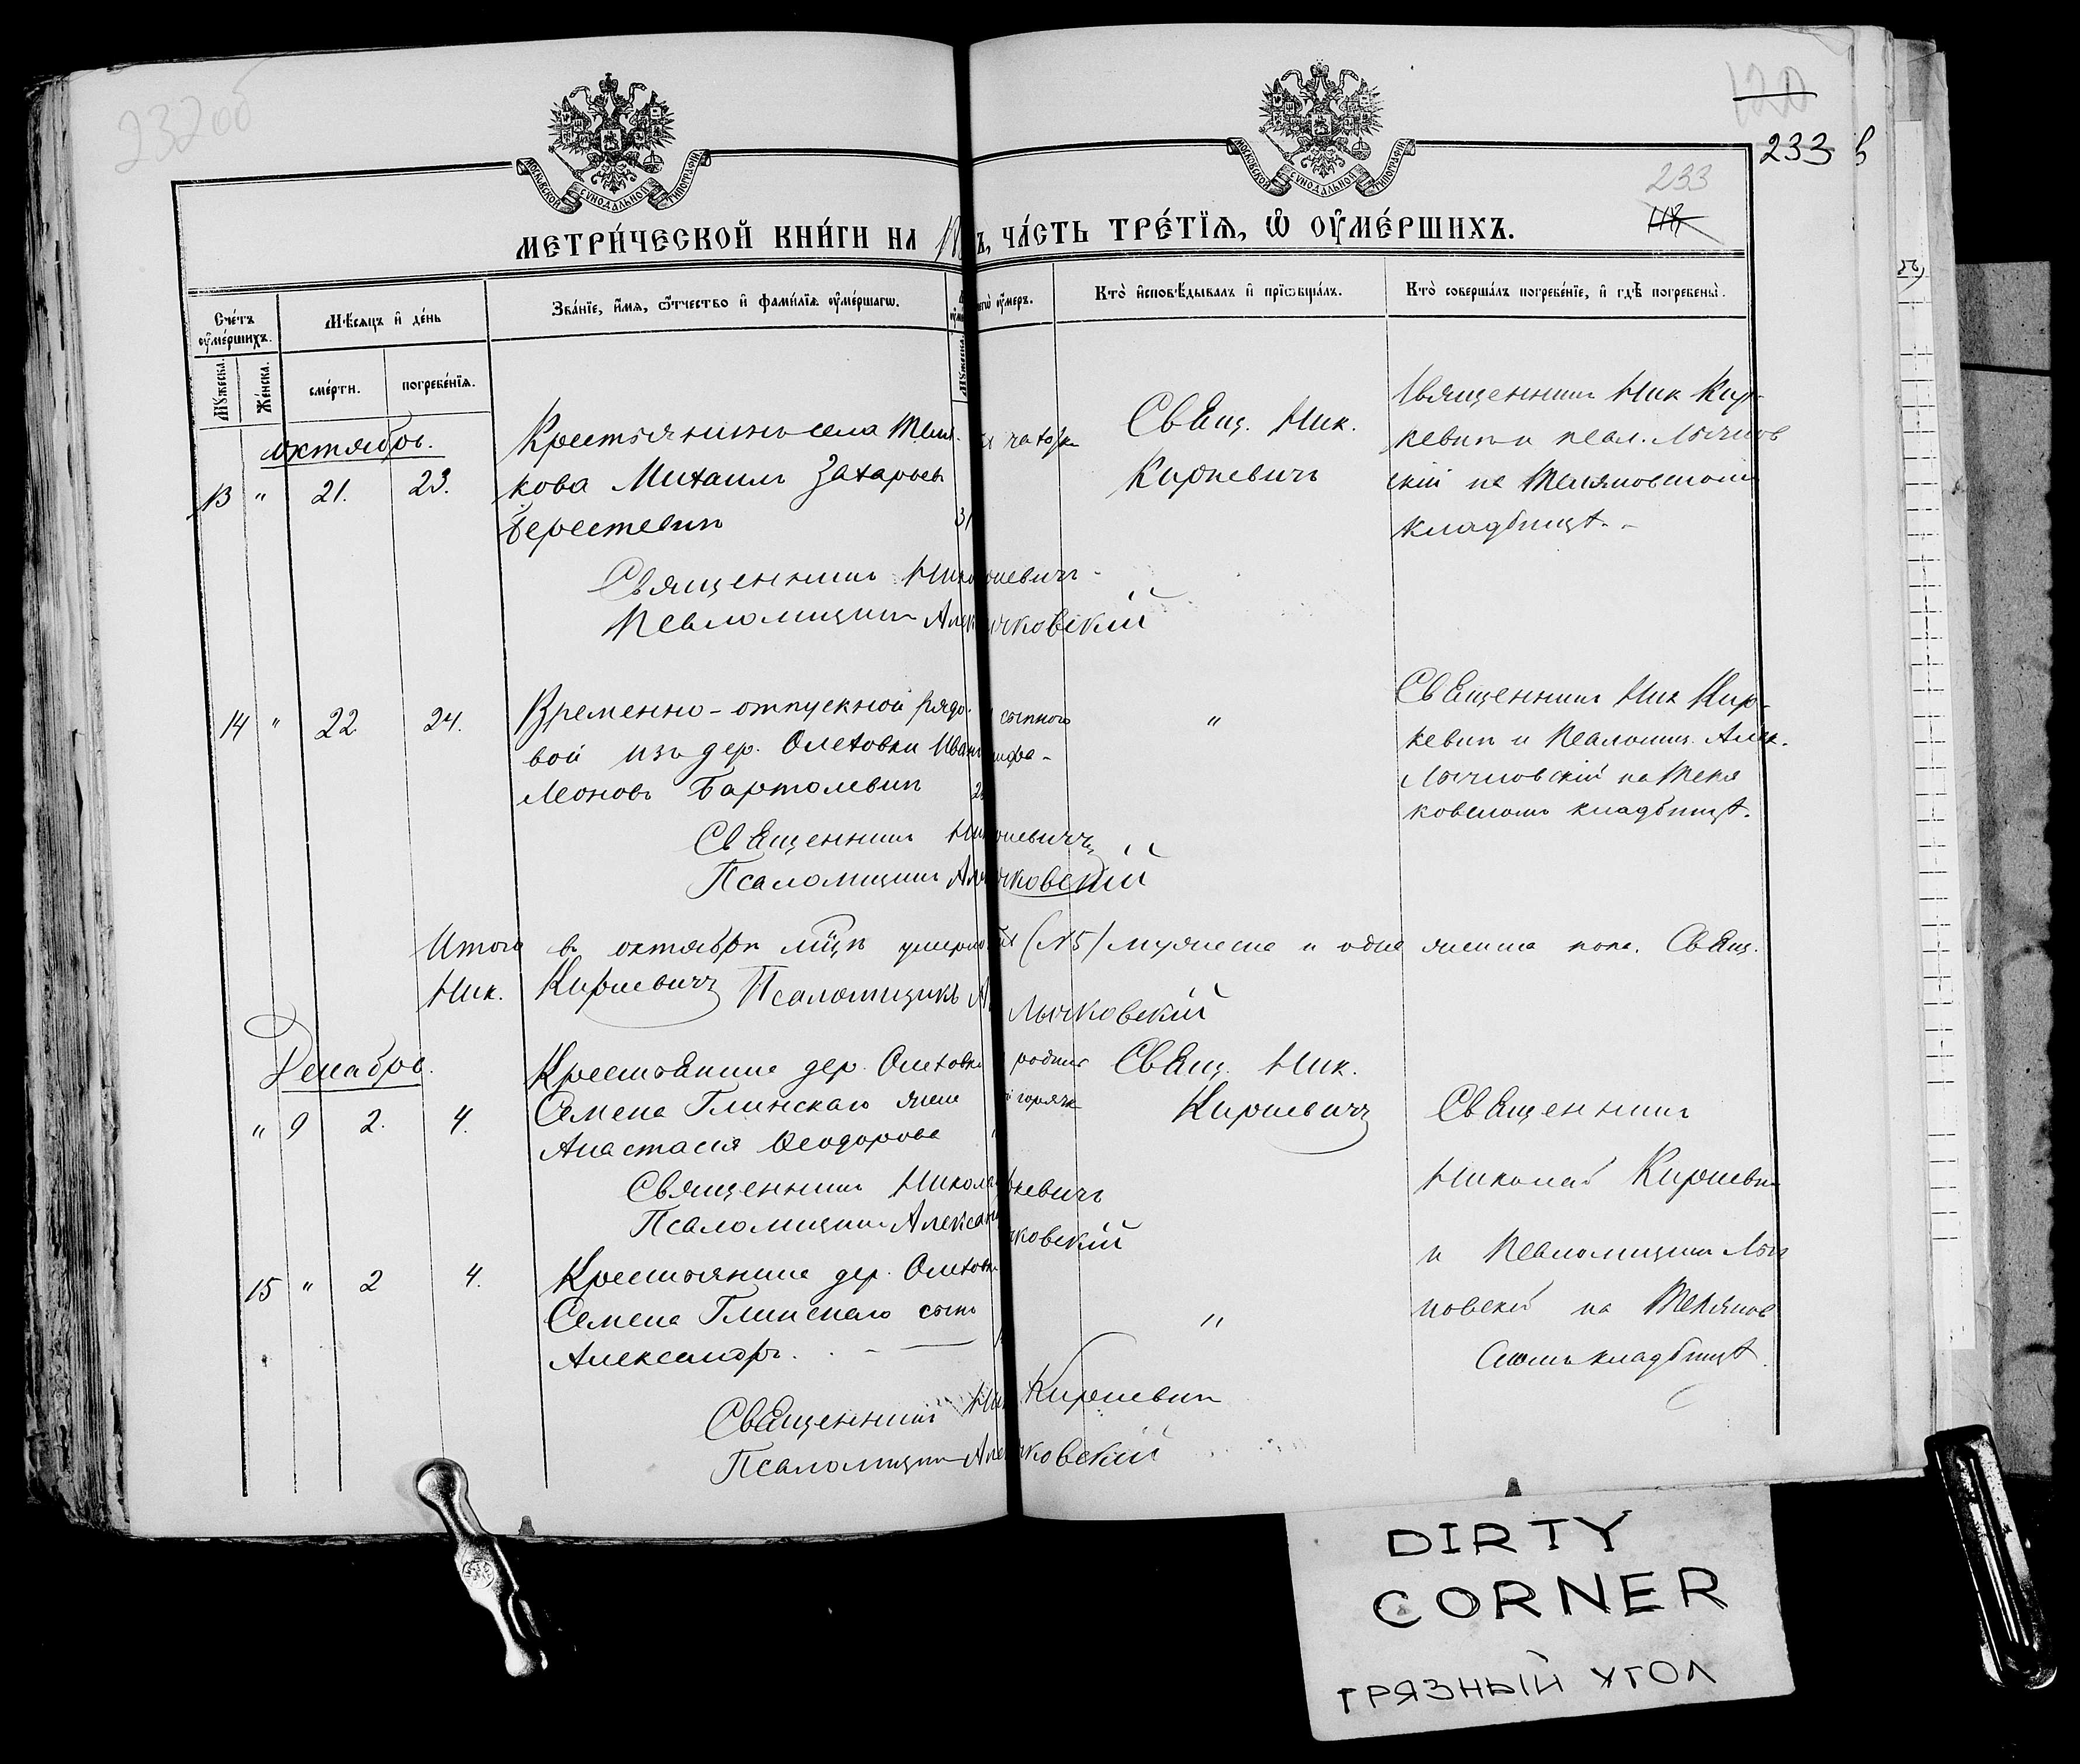 232об
120
233 в
233
МОСКОВСКОЙ СѴНОДАЛЬНОЙ ТИПОГРАФІИ
МОСКОВСКОЙ СѴНОДАЛЬНОЙ ТИПОГРАФІИ
МЕТРИ́ЧЕСКОЙ КНИ́ГИ НА 18 ъ, ЧА́СТЬ ТРЕ́ТЇѦ, Ѡ҆ ОУ҆МЕ́РШИХЪ.
Сче́тъ оу҆ме́ршихъ.
Мѣ́сѧцъ и҆ де́нь
Зва́нїе, и҆́мѧ, ѻ҆́тчество и҆ фами́лїѧ оу҆ме́ршагѡ.
чегѡ̀ оу҆́меръ.
Кто̀ и҆сповѣ́дывалъ и҆ прїѡбща́лъ.
Кто̀ соверша́лъ погребе́нїе, и҆ гдѣ̀ погребены̀.
Мꙋ́жеска.
Же́нска.
сме́рти.
погребе́нїѧ.
Мꙋ́жеска.
октябрь.
13 " 21. 23.
Крестьянинъ села Теля-
кова Михаилъ Захарьевъ
Берестевичъ 31
Свящ. Ник.
Киркевичъ
Священникъ Ник Кир-
кевичъ и псал. Лычков
скій на Теляковскомъ
кладбищѣ.
Священникъ Ник ркевичъ
Псаломщикъ Алек ычковскій
14 " 22 24.
Временно-отпускной рядо-
вой изъ дер. Олеховки Иванъ
Леоновъ Бартолевичъ 2
сыпного
тифа-
"
Священникъ Ник Кир-
кевичъ и Псаломщ. Алек.
Лычковскій на Теля
ковскомъ кладбищѣ.
Священникъ Ник ркевичъ
Псаломщикъ Ал чковскій
Итого въ октябрѣ мцѣ умерло (№5) мужеска и одна женска пола. Свящ.
Ник. Киркевичъ Псаломщикъ А Лычковскій
Декабрь.
" 9 2. 4.
Крестьянина дер. Олеховки
Семена Глинскаго жена
Анастасія Ѳеодорова
родил
горячк
Свящ. Ник.
Киркевичъ
Священникъ
Николай Киркевич
и Псаломщикъ Лыч
ковскій на Теляков
скомъ кладбищѣ.
Священникъ Никола ркевичъ
Псаломщикъ Алексан чковскій
15 " 2 4.
Крестьянина дер. Олеховки
Семена Глинскаго сынъ
Александръ.
"
Священникъ Ник Киркевичъ
Псаломщикъ Але чковскій
DIRTY
CORNER
ГРЯЗНЫЙ УГОЛ